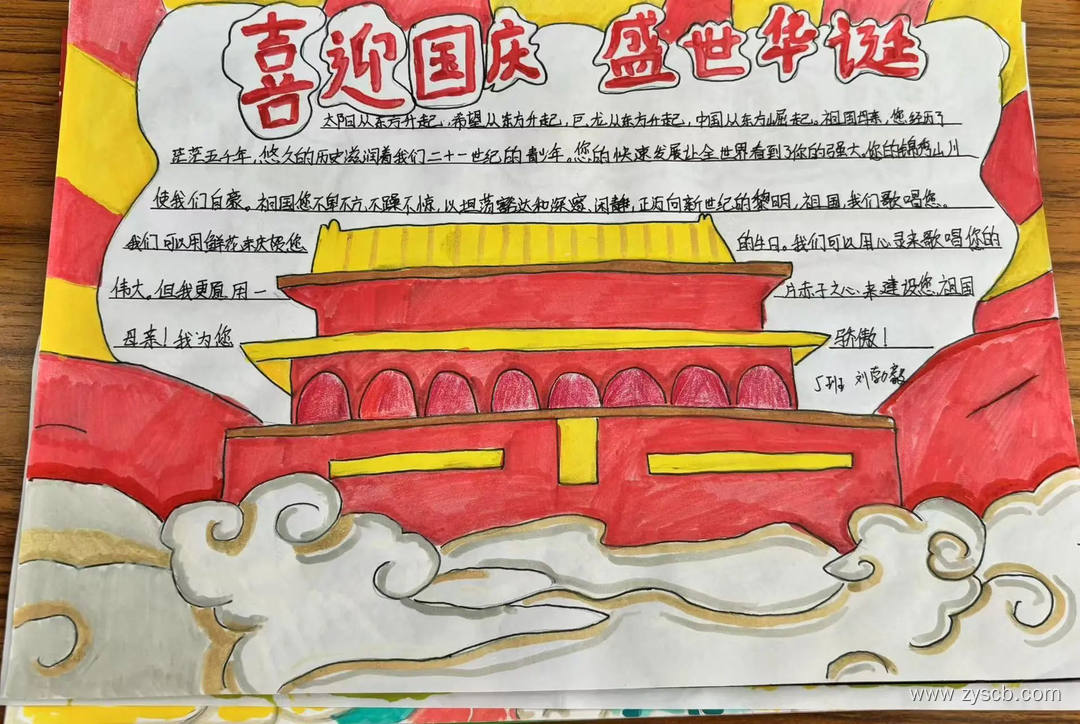 喜迎国庆 盛世华诞
太阳从东方升起,希望从东方升起,巨龙从东方升起,中国从东方崛起。祖国母亲,您经历了
茫茫五千年,悠久的历史滋润着我们二十一世纪的青少年。您的快速发展让全世界看到了你的强大。你的锦秀山川
使我们自豪。祖国您不卑不亢,不躁不惊,以坦荡豁达和深邃,闲静,正迈向新世纪的黎明,祖国,我们歌唱您。
我们可以用鲜花来庆贺您 的生日。我们可以用心灵来歌唱你的
伟大。但我更愿用一 片赤子之心来建设您,祖国
母亲!我为您 骄傲!
5班 刘勃毅
www.zyscb.com